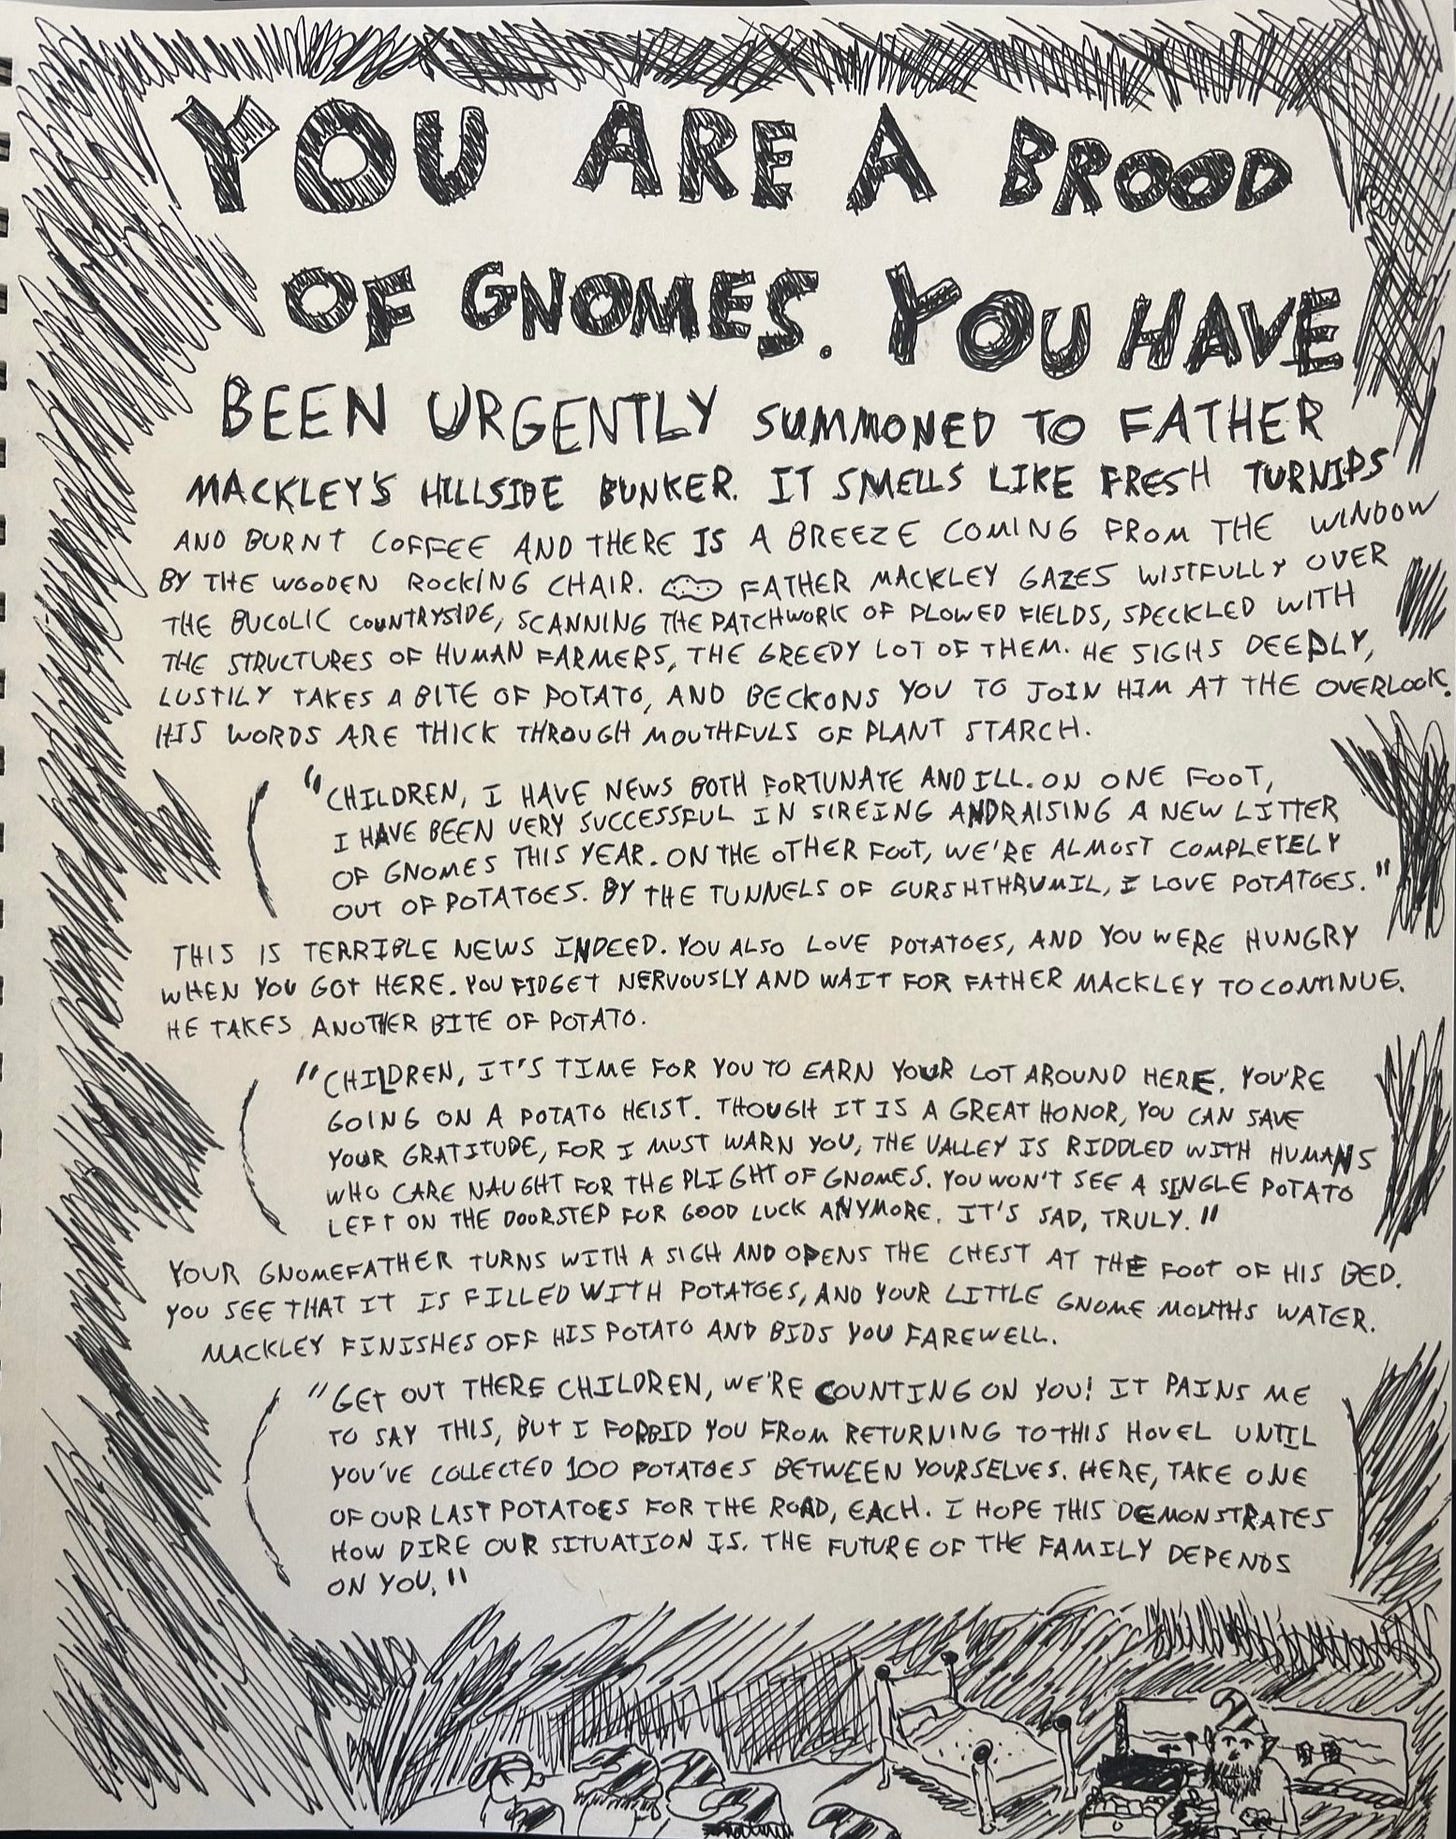 YOU ARE A BROOD
OF GNOMES. YOU HAVE
BEEN URGENTLY SUMMONED TO FATHER
MACKLEY'S HILLSIDE BUNKER. IT SMELLS LIKE FRESH TURNIPS
AND BURNT COFFEE AND THERE IS A BREEZE COMING FROM THE WINDOW
BY THE WOODEN ROCKING CHAIR. FATHER MACKLEY GAZES WISTFULLY OVER
THE BUCOLIC COUNTRYSIDE, SCANNING THE PATCHWORK OF PLOWED FIELDS, SPECKLED WITH
THE STRUCTURES OF HUMAN FARMERS, THE GREEDY LOT OF THEM. HE SIGHS DEEPLY,
LUSTILY TAKES A BITE OF POTATO, AND BECKONS YOU TO JOIN HIM AT THE OVERLOOK.
HIS WORDS ARE THICK THROUGH MOUTHFULS OF PLANT STARCH.
"CHILDREN, I HAVE NEWS BOTH FORTUNATE AND ILL. ON ONE FOOT,
I HAVE BEEN VERY SUCCESSFUL IN SIREING AND RAISING A NEW LITTER
OF GNOMES THIS YEAR. ON THE OTHER FOOT, WE'RE ALMOST COMPLETELY
OUT OF POTATOES. BY THE TUNNELS OF GURSHTHRUMIL, I LOVE POTATOES."
THIS IS TERRIBLE NEWS INDEED. YOU ALSO LOVE POTATOES, AND YOU WERE HUNGRY
WHEN YOU GOT HERE. YOU FIDGET NERVOUSLY AND WAIT FOR FATHER MACKLEY TO CONTINUE.
HE TAKES ANOTHER BITE OF POTATO.
"CHILDREN, IT'S TIME FOR YOU TO EARN YOUR LOT AROUND HERE. YOU'RE
GOING ON A POTATO HEIST. THOUGH IT IS A GREAT HONOR, YOU CAN SAVE
YOUR GRATITUDE, FOR I MUST WARN YOU, THE VALLEY IS RIDDLED WITH HUMANS
WHO CARE NAUGHT FOR THE PLIGHT OF GNOMES. YOU WON'T SEE A SINGLE POTATO
LEFT ON THE DOORSTEP FOR GOOD LUCK ANYMORE. IT'S SAD, TRULY."
YOUR GNOMEFATHER TURNS WITH A SIGH AND OPENS THE CHEST AT THE FOOT OF HIS BED.
YOU SEE THAT IT IS FILLED WITH POTATOES, AND YOUR LITTLE GNOME MOUTHS WATER.
MACKLEY FINISHES OFF HIS POTATO AND BIDS YOU FAREWELL.
"GET OUT THERE CHILDREN, WE'RE COUNTING ON YOU! IT PAINS ME
TO SAY THIS, BUT I FORBID YOU FROM RETURNING TO THIS HOVEL UNTIL
YOU'VE COLLECTED 100 POTATOES BETWEEN YOURSELVES. HERE, TAKE ONE
OF OUR LAST POTATOES FOR THE ROAD, EACH. I HOPE THIS DEMONSTRATES
HOW DIRE OUR SITUATION IS. THE FUTURE OF THE FAMILY DEPENDS
ON YOU."